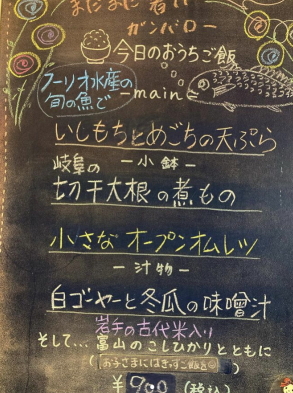 ガンバロー
今日のおうちご飯
フーリオ水産の
旬の魚で
―main―
いしもちとめごちの天ぷら
―小鉢―
岐阜の
切干大根の煮もの
小さなオープンオムレツ
―汁物―
白ゴーヤーと冬瓜の味噌汁
岩手の古代米入り
そして…富山のこしひかりとともに
(お子さまにはきずご飯を)
¥900 (税込)